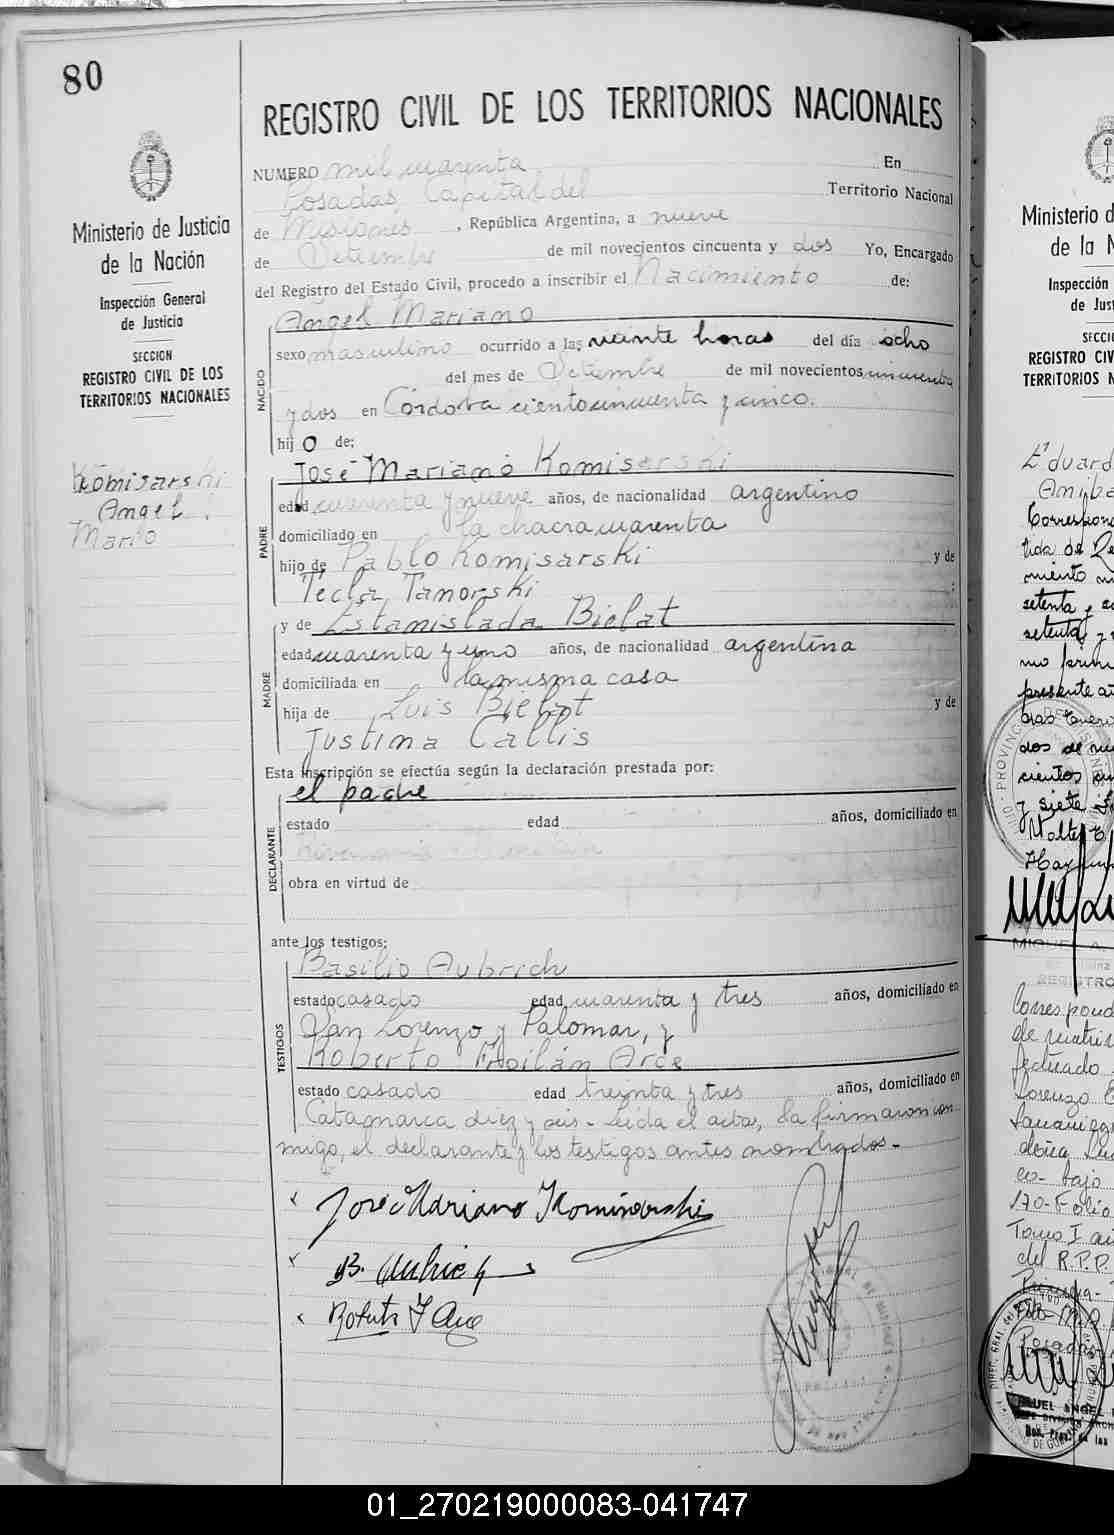 80
REGISTRO CIVIL DE LOS TERRITORIOS NACIONALES
Ministerio de Justicia
de la Nación
Inspección General
de Justicia
SECCION
REGISTRO CIVIL DE LOS
TERRITORIOS NACIONALES
Komisarski
Angel
Mario
NUMERO mil cuarenta En
Posadas, Capital del Territorio Nacional
de Misiones, República Argentina, a nueve
de Setiembre de mil novecientos cincuenta y dos Yo, Encargado
del Registro del Estado Civil, procedo a inscribir el Nacimiento de:
NACIDO
Angel Mariano
sexo masculino ocurrido a las veinte horas del día ocho
del mes de Setiembre de mil novecientos cincuenta
y dos en Córdoba ciento cincuenta y cinco.
hijo de:
PADRE
José Mariano Komisarski
edad cuarenta y nueve años, de nacionalidad argentino
domiciliado en la chacra cuarenta
hijo de Pablo Komisarski y de
Tecla Tanorski ;
MADRE
y de Estanislada Bielat
edad cuarenta y uno años, de nacionalidad argentina
domiciliada en la misma casa
hija de Luis Bielat y de
Justina Callis
Esta inscripción se efectúa según la declaración prestada por:
DECLARANTE
el padre
estado edad años, domiciliado en
obra en virtud de
ante los testigos:
TESTIGOS
Basilio Aubrich
estado casado edad cuarenta y tres años, domiciliado en
San Lorenzo y Palomar, y
Roberto Froilán Arce
estado casado edad treinta y tres años, domiciliado en
Catamarca diez y seis - Leida el acta, la firmaron con-
migo, el declarante y los testigos antes nombrados.-
José Mariano Komisarski
B. Aubrich
Roberto F Arce
Ministerio d
de la N
Inspección
de Just
SECCI
REGISTRO CIV
TERRITORIOS N
Eduard
Aniba
setenta y
setenta y
presente
y siete
de R.P.P.
Tomo I
01_270219000083-041747